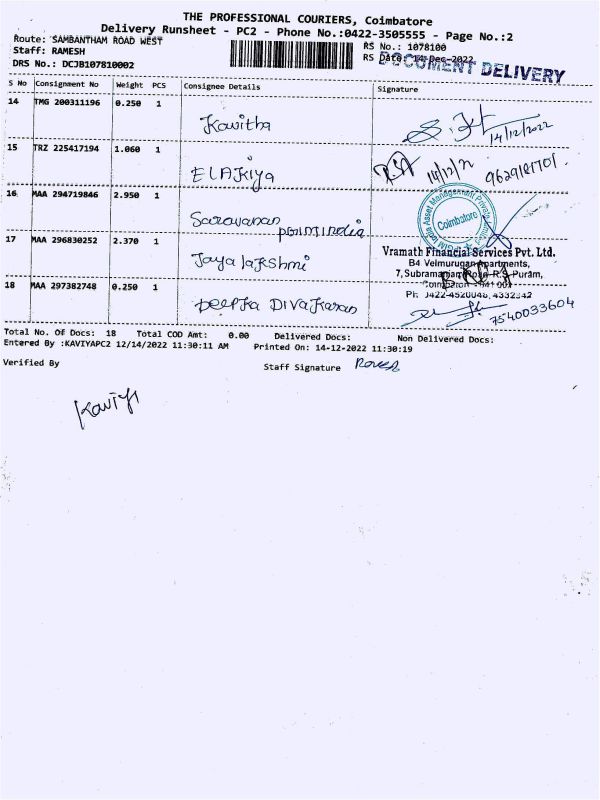 THE PROFESSIONAL COURIERS, Coimbatore
Delivery Runsheet - PC2 - Phone No.:0422-3505555 - Page No.:2
Route: SAMBANTHAM ROAD WEST
RS No.: 1078100
Staff: RAMESH
RS Date: 14-Dec-2022
DOCUMENT DELIVERY
DRS No.: DCJB107810002
S No Consignment No Weight PCS Consignee Details Signature
14 TMG 200311196 0.250 1
Kavitha
14/12/2022
15 TRZ 225417194 1.060 1
ELAKIYA
14/12/22
16 MAA 294719846 2.950 1
Saravanan
India Asset Management Private Limited
Coimbatore
17 MAA 296830252 2.370 1
Jayalakshmi
Vramath Financial Services Pvt. Ltd.
B4 Velmurugan Apartments,
7, Subramaniam Road R.S. Puram,
Coimbatore - 641 002
18 MAA 297382748 0.250 1
Deepka Divakaran
7540033604
Total No. Of Docs: 18 Total COD Amt: 0.00 Delivered Docs: Non Delivered Docs:
Entered By :KAVIYAPC2 12/14/2022 11:30:11 AM Printed On: 14-12-2022 11:30:19
Verified By
Staff Signature
Kaviya